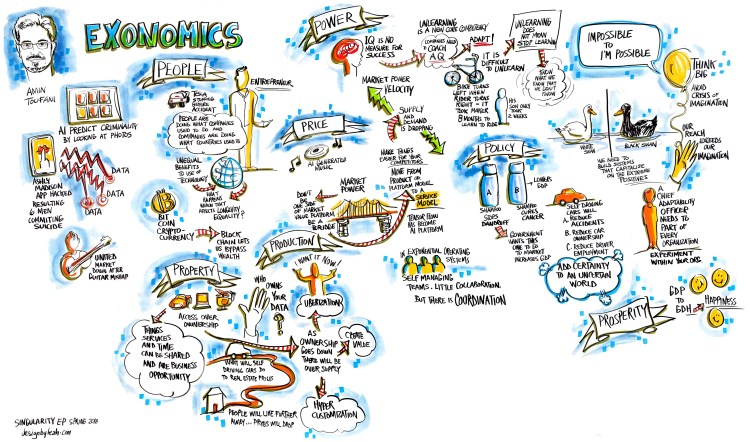 EXONOMICS
AMIN
TOUFANI
AI PREDICT CRIMINALITY
BY LOOKING AT PHOTOS
ASHLEY
MADISON
APP HACKED
RESULTING
4 MEN
COMMITING
SUICIDE
DATA
DATA
DATA
UNITED
MARKET
DOWN AFTER
GUITAR MISHAP
PEOPLE
ENTREPRENEUR
TESLA
STOPPING
BEFORE
ACCIDENT
PEOPLE ARE
DOING WHAT COMPANIES
USED TO DO AND
COMPANIES ARE DOING
WHAT COUNTRIES USED TO
UNEQUAL
BENEFITS
TO USE OF
TECHNOLOGY
WHAT
HAPPENS
WHEN THAT
AFFECTS LONGEVITY
EQUALITY?
BIT
COIN
CRYPTO-
CURRENCY
BLOCK
CHAIN LETS
US BYPASS
WEALTH
POWER
IQ IS NO
MEASURE FOR
SUCCESS
UNLEARNING
IS A NEW CORE COMPETENCY
COMPANIES NEED
COACH
A.Q.
ADAPT!
IT IS
DIFFICULT
TO UNLEARN
UNLEARNING
DOES
NOT MEAN
STOP LEARNING
KNOW WHAT
WE KNOW THAT
WE DON'T KNOW
BIKE TURNS
LEFT WHEN
RIDER TURNS
RIGHT - IT
TOOK MAKER
8 MONTHS TO LEARN TO RIDE
HIS
SON ONLY
TOOK
2 WEEKS
MARKET POWER
VELOCITY
SUPPLY
AND
DEMAND IS
DROPPING
PRICE
AI GENERATED
MUSIC
MAKE THINGS
EASIER FOR YOUR
COMPETITORS
MOVE FROM
PRODUCT OR
PLATFORM MODEL
TO A
SERVICE
MODEL
MARKET
POWER
DON'T
BE ONE
SIDE OF
MARKET
VALUE PLATFORM
BE A
BRIDGE
TENSOR FLOW
HAS BECOME
AI PLATFORM
PRODUCTION
I WANT IT NOW!
UBERIZATION
AS
OWNERSHIP
GOES DOWN
THERE WILL
BE OVER SUPPLY
CREATE
VALUE
HYPER
CUSTOMIZATION
IN EXPONENTIAL OPERATING
SYSTEMS
SELF MANAGING
TEAMS. LITTLE COLLABORATION.
BUT THERE IS COORDINATION
PROPERTY
ACCESS OVER
OWNERSHIP
WHO
OWNS
YOUR
DATA
THINGS
SERVICES
AND TIME
CAN BE SHARED
AND ARE BUSINESS
OPPORTUNITY
WHAT WILL SELF
DRIVING CARS DO
TO REAL ESTATE PRICES
PEOPLE WILL LIVE FURTHER
AWAY... PRICES WILL DROP
POLICY
A
B
LOWERS
GDP
SHAMPOO
STOPS
DANDRUFF
SHAMPOO
CURES
CANCER
GOVERNMENT
WANTS THIS
ONE TO GO
TO MARKET
INCREASES GDP
SELF DRIVING
CARS WILL
A. REDUCE
ACCIDENTS
B. REDUCE CAR
OWNERSHIP
C. REDUCE DRIVER
EMPLOYMENT
ADD CERTAINTY
TO AN UNCERTAIN
WORLD
IMPOSSIBLE
TO
I'M POSSIBLE
WHITE
SWAN
BLACK SWAN
WE NEED TO
BUILD SYSTEMS
THAT CAPITALIZE
ON THE EXTREME
POSITIVES
THINK
BIG
AVOID
CRISIS OF
IMAGINATION
OUR
REACH
EXCEEDS
OUR
IMAGINATION
A CHIEF
ADAPTABILITY
OFFICER
NEEDS TO
PART OF
EVERY
ORGANIZATION
EXPERIMENT WITHIN YOUR ORG.
PROSPERITY
GDP
TO
GDH
HAPPINESS
SINGULARITY EP SPRING 2018
designbyleah.com